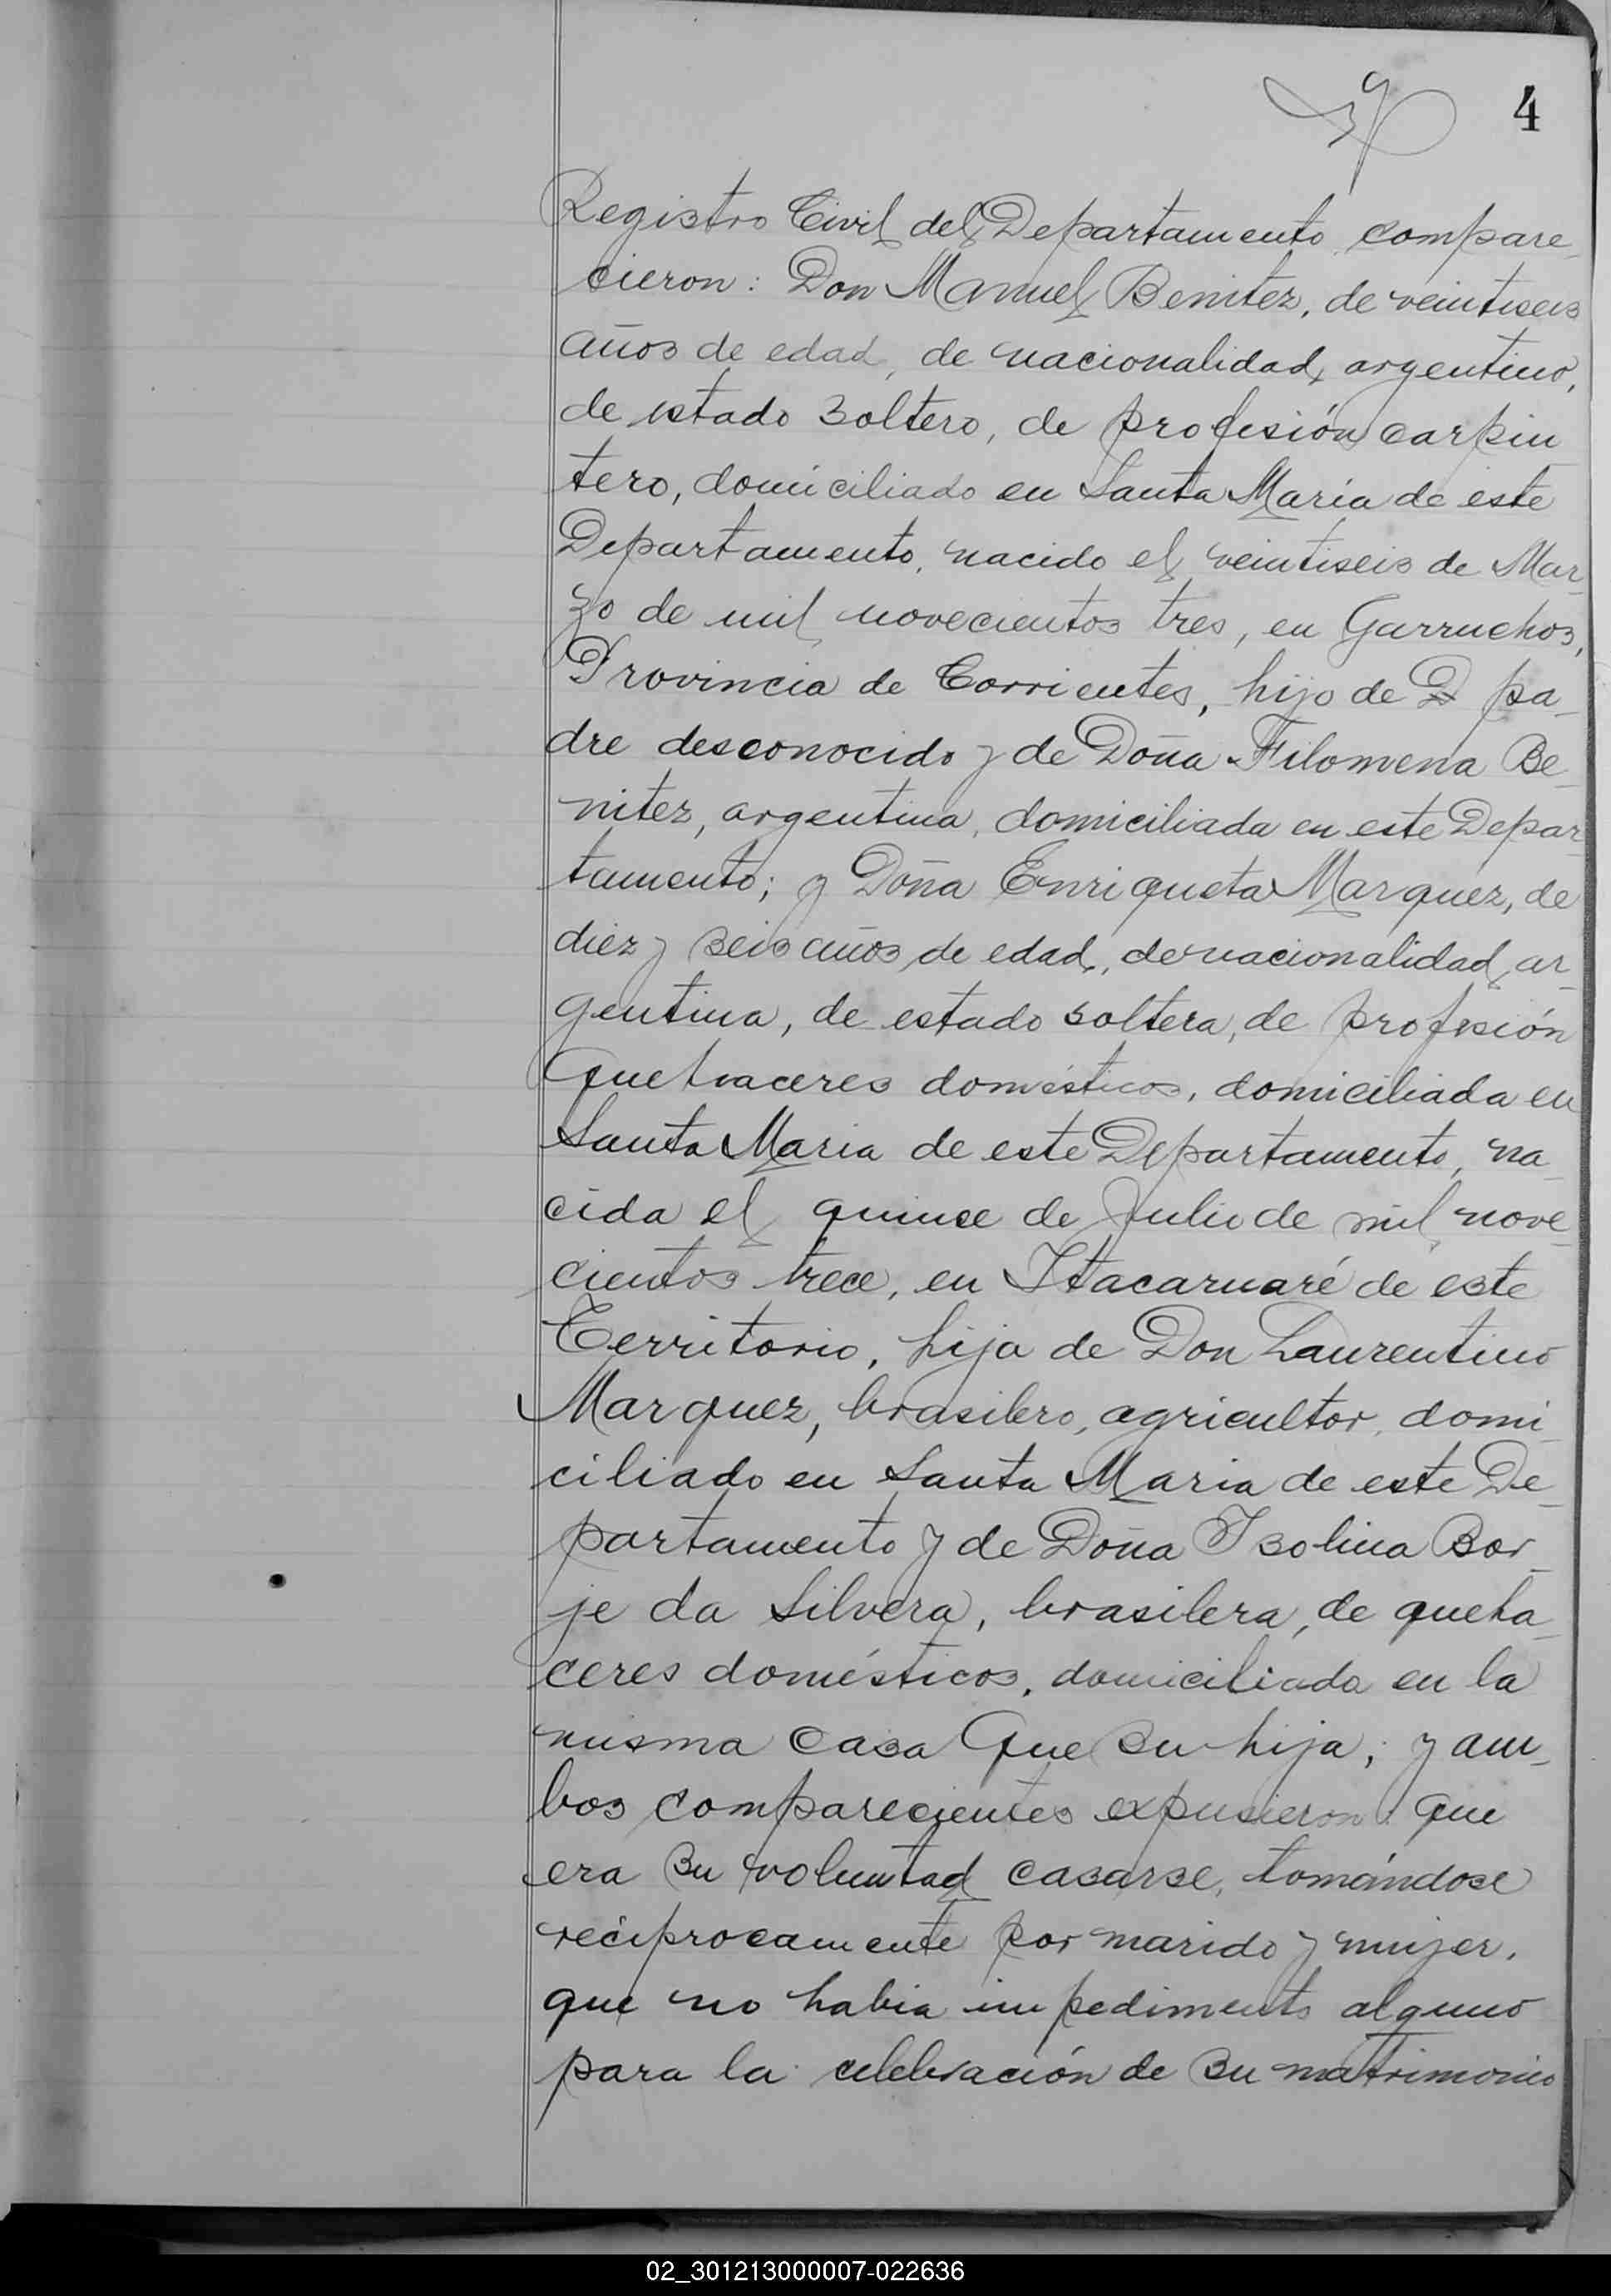 4
Registro Civil del Departamento compare_
cieron: Don Manuel Benitez, de veintiseis
años de edad, de nacionalidad argentino,
de estado soltero, de profesión carpin_
tero, domiciliado en Santa María de este
Departamento, nacido el veintiseis de Mar_
zo de mil novecientos tres, en Garruchos,
Provincia de Corrientes, hijo de D pa_
dre desconocido y de Doña Filomena Be_
nitez, argentina, domiciliada en este Depar_
tamento; y Doña Enriqueta Marquez, de
diez y seis años de edad, de nacionalidad ar_
gentina, de estado soltera, de profesión
quehaceres domésticos, domiciliada en
Santa Maria de este Departamento, na_
cida el quince de Julio de mil nove_
cientos trece, en Itacaruaré de este
Territorio, hija de Don Laurentino
Marquez, brasilero, agricultor, domi_
ciliado en Santa Maria de este De_
partamento y de Doña Isolina Bor_
je da Silvera, brasilera, de queha_
ceres domésticos, domiciliada en la
misma casa que su hija; y am_
bos comparecientes expusieron: que
era su voluntad casarse, tomándose
reciprocamente por marido y mujer,
que no habia impedimento alguno
para la celebración de su matrimonio
02_301213000007-022636